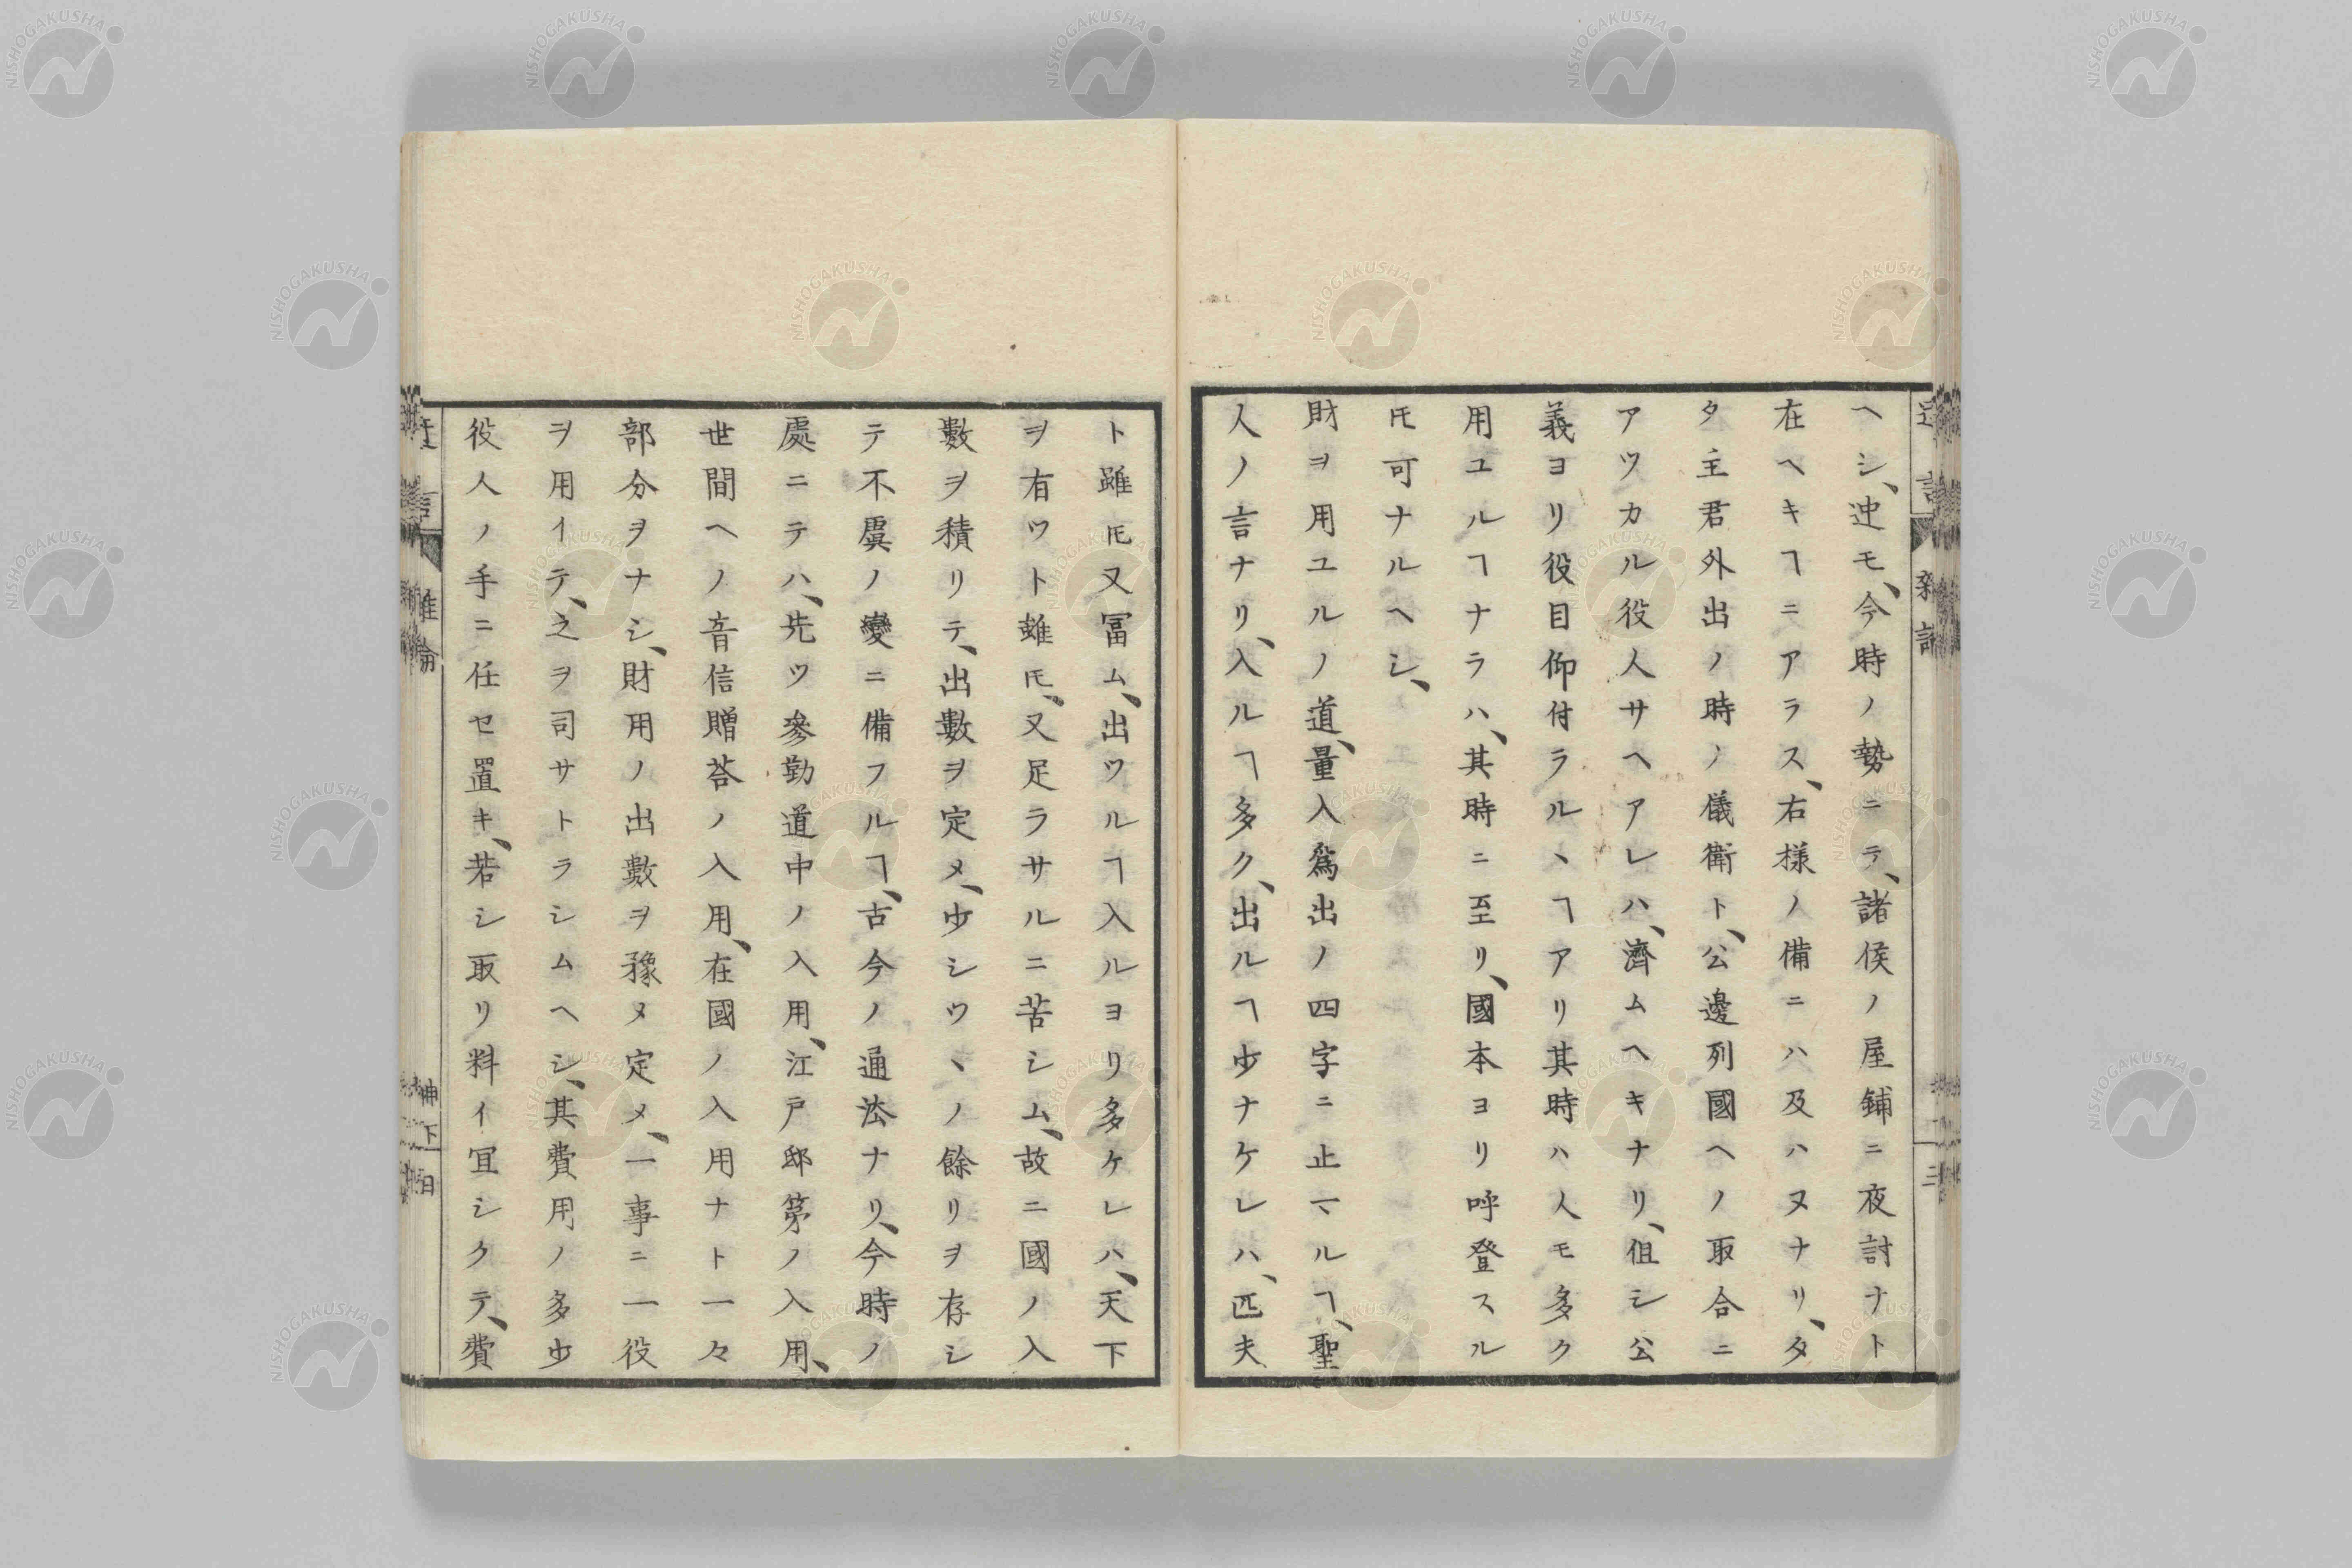 ヘシ、迚モ、今時ノ勢ニテ、諸侯ノ屋鋪ニ夜討ナト
在ヘキヿニアラス、右様ノ備ニハ及ハヌナリ、タ
タ主君外出ノ時ノ儀衛ト、公邊列國ヘノ取合ニ
アツカル役人サヘアレハ、濟ムヘキナリ、但シ公
義ヨリ役目仰付ラルヽヿアリ其時ハ人モ多ク
用ユルヿナラハ、其時ニ至リ、國本ヨリ呼登スル
𪜈可ナルヘシ、
財ヲ用ユルノ道、量入爲出ノ四字ニ止マルヿ、聖
人ノ言ナリ、入ルヿ多ク、出ルヿ少ナケレハ、匹夫
ト雖𪜈又冨ム、出ツルヿ入ルヨリ多ケレハ、天下
ヲ有ツト雖𪜈、又足ラサルニ苦シム、故ニ國ノ入
數ヲ積リテ、出數ヲ定メ、少シツヽノ餘リヲ存シ
テ不虞ノ變ニ備フルヿ、古今ノ通法ナリ、今時ノ
處ニテハ、先ツ參勤道中ノ入用、江戸邸第ノ入用、
世間ヘノ音信贈荅ノ入用、在國ノ入用ナト一々
部分ヲナシ、財用ノ出數ヲ豫メ定メ、一事ニ一役
ヲ用イテ、之ヲ司サトラシムヘシ、其費用ノ多少
役人ノ手ニ任セ置キ、若シ取リ料イ冝シクテ、費
NISHOGAKUSHA